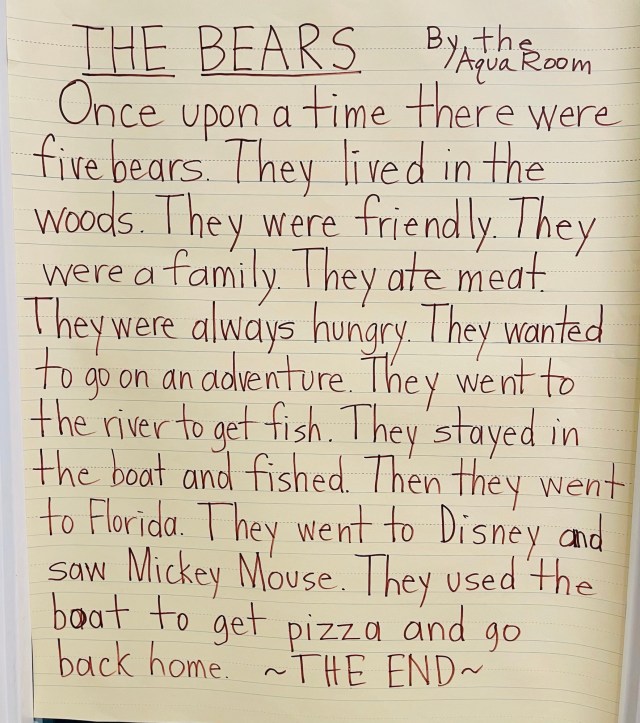 THE BEARS By the
Aqua Room
Once upon a time there were
five bears. They lived in the
woods. They were friendly. They
were a family. They ate meat.
They were always hungry. They wanted
to go on an adventure. They went to
the river to get fish. They stayed in
the boat and fished. Then they went
to Florida. They went to Disney and
saw Mickey Mouse. They used the
boat to get pizza and go
back home. ~THE END~